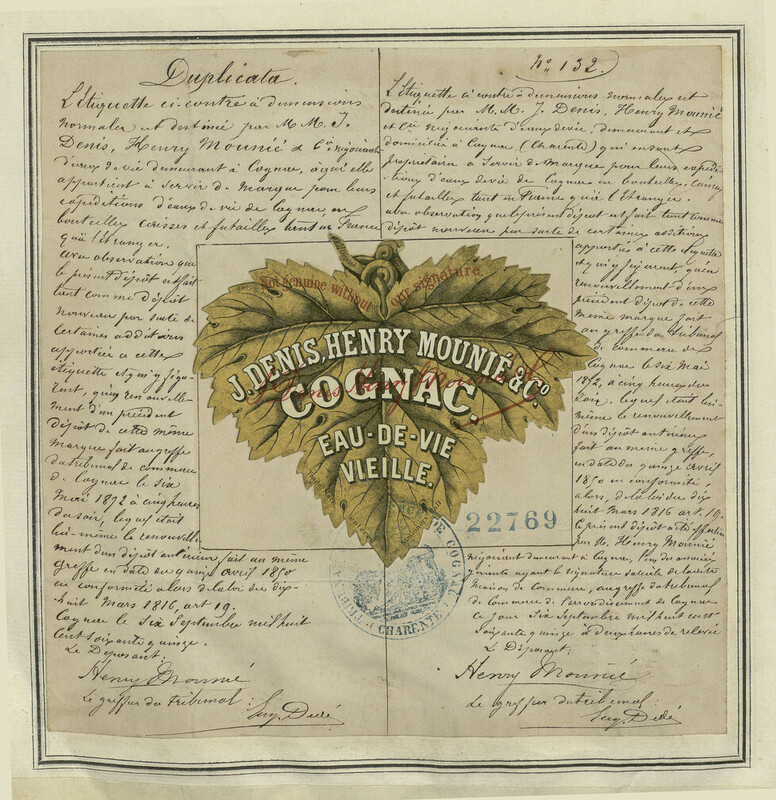 Duplicata.
L'Etiquette ci-contre à dimensions
normales est destinée par M M. J.
Denis, Henry Mounié & Cie négociants
d'eaux de vie demeurant à Cognac, à qui elle
appartient à servir de marque pour leurs
expéditions d'eaux de vie de Cognac en
bouteilles caisses et futailles tant en France
qu'à l'étranger.
avec observation que
le présent dépôt est fait
tant comme dépôt
nouveau par suite de
certaines additions
apportées à cette
étiquette et qui y figu-
rent, qu'en renouvelle-
ment d'un précédent
dépôt de cette même
marque fait au greffe
du tribunal de commerce
de Cognac le six
Mai 1872 à cinq heures
du soir, lequel était
lui-même le renouvelle-
ment d'un dépôt antérieur fait au même
greffe en date du quinze avril 1850
en conformité alors de la loi du dix-
huit Mars 1816, art 19.
Cognac le six Septembre mil huit
cent soixante quinze.
Le Déposant.
Henry Mounié
Le greffier du tribunal:
Eug. Dedé
No 132.
L'étiquette ci contre à dimensions normales est
destinée par M. M. J. Denis, Henry Mounié
et Cie négociants d'eaux de vie, demeurant et
domiciliés à Cognac (Charente) qui en sont
propriétaires à servir de Marque pour leurs expédi-
tions d'eaux de vie de Cognac en bouteilles, caisses
et futailles tant en France qu'à l'Etranger.
avec observation que le présent dépôt est fait tant comme
dépôt nouveau par suite de certaines additions
apportées à cette étiquette
et qui y figurent, qu'en
renouvellement d'un
précédent dépôt de cette
même marque fait
au greffe du tribunal
de commerce de
Cognac le six Mai
1872, à cinq heures du
soir, lequel était lui-
même le renouvellement
d'un dépôt antérieur
fait au même greffe,
en date du quinze avril
1850 en conformité,
alors, de la loi du dix
huit Mars 1816 art. 19.
Le présent dépôt a été effectué
par M. Henry Mounié
négociant demeurant à Cognac, l'un des associés
gérants ayant la signature sociale de la dite
maison de Commerce, au greffe du tribunal
de Commerce de l'arrondissement de Cognac
ce jour six Septembre mil huit cent
soixante quinze à deux heures de relevée
Le Déposant.
Henry Mounié
Le greffier du tribunal:
Eug. Dedé
Not genuine without our signature
J. DENIS, HENRY MOUNIÉ & Co.
J. Denis Henry Mounié & Co
COGNAC.
EAU-DE-VIE
VIEILLE.
22769
DE COGNAC
CHARENTE